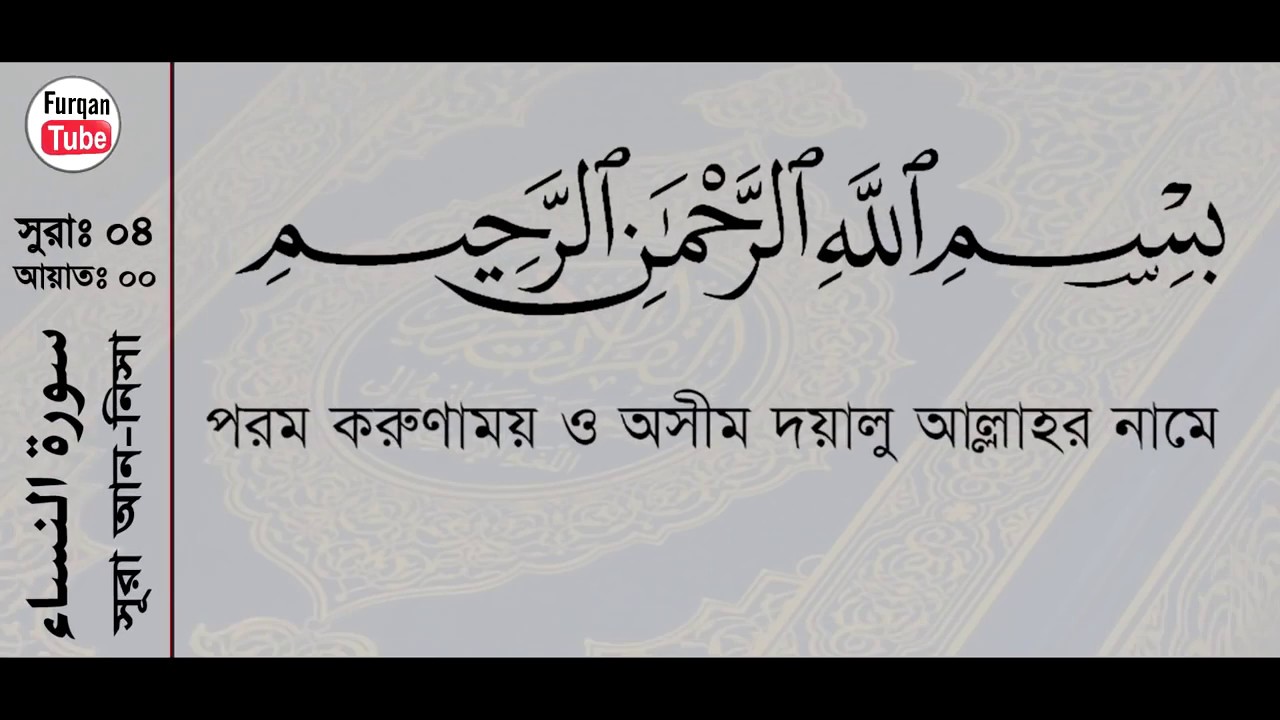 Furqan
Tube
সুরাঃ ০৪
আয়াতঃ ০০
سورة النساء
সূরা আন-নিসা
بِسْمِ ٱللَّهِ ٱلرَّحْمَٰنِ ٱلرَّحِيمِ
পরম করুণাময় ও অসীম দয়ালু আল্লাহর নামে